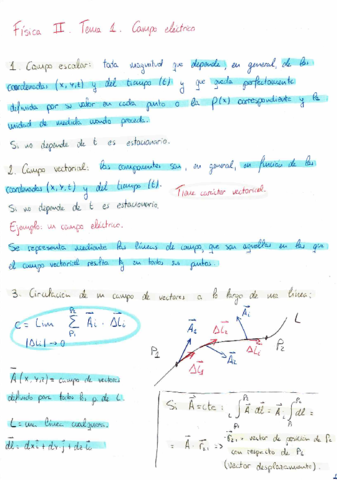 Física II. Tema 1. Campo eléctrico
1. Campo escalar: toda magnitud que depende, en general, de las
coordenadas (x, y, z) y del tiempo (t) y que queda perfectamente
definida por su valor en cada punto o la P(x) correspondiente y la
unidad de medida cuando proceda.
Si no depende de t es estacionario.
2. Campo vectorial: las componentes son, en general, en función de las
coordenadas (x, y, z) y del tiempo (t).
Tiene carácter vectorial.
Si no depende de t es estacionario
Ejemplo: un campo eléctrico.
Se representa mediante las líneas de campo, que son aquellas en las que
el campo vectorial resulta tg en todos sus puntos.
3. Circulación de un campo de vectores a lo largo de una línea:
C = Lim Σ A⃗i · ΔL⃗i
|ΔLi| → 0
P1
P2
L
A⃗(x, y, z) = campo de vectores
definido para todos los p de L.
L = una línea cualquiera
dl⃗ = dx i⃗ + dy j⃗ + dz k⃗
Si A⃗ = cte: ∫ A⃗ dl⃗ = A⃗ ∫ dl⃗ =
= vector de posición de P2
con respecto de P1
(vector desplazamiento).